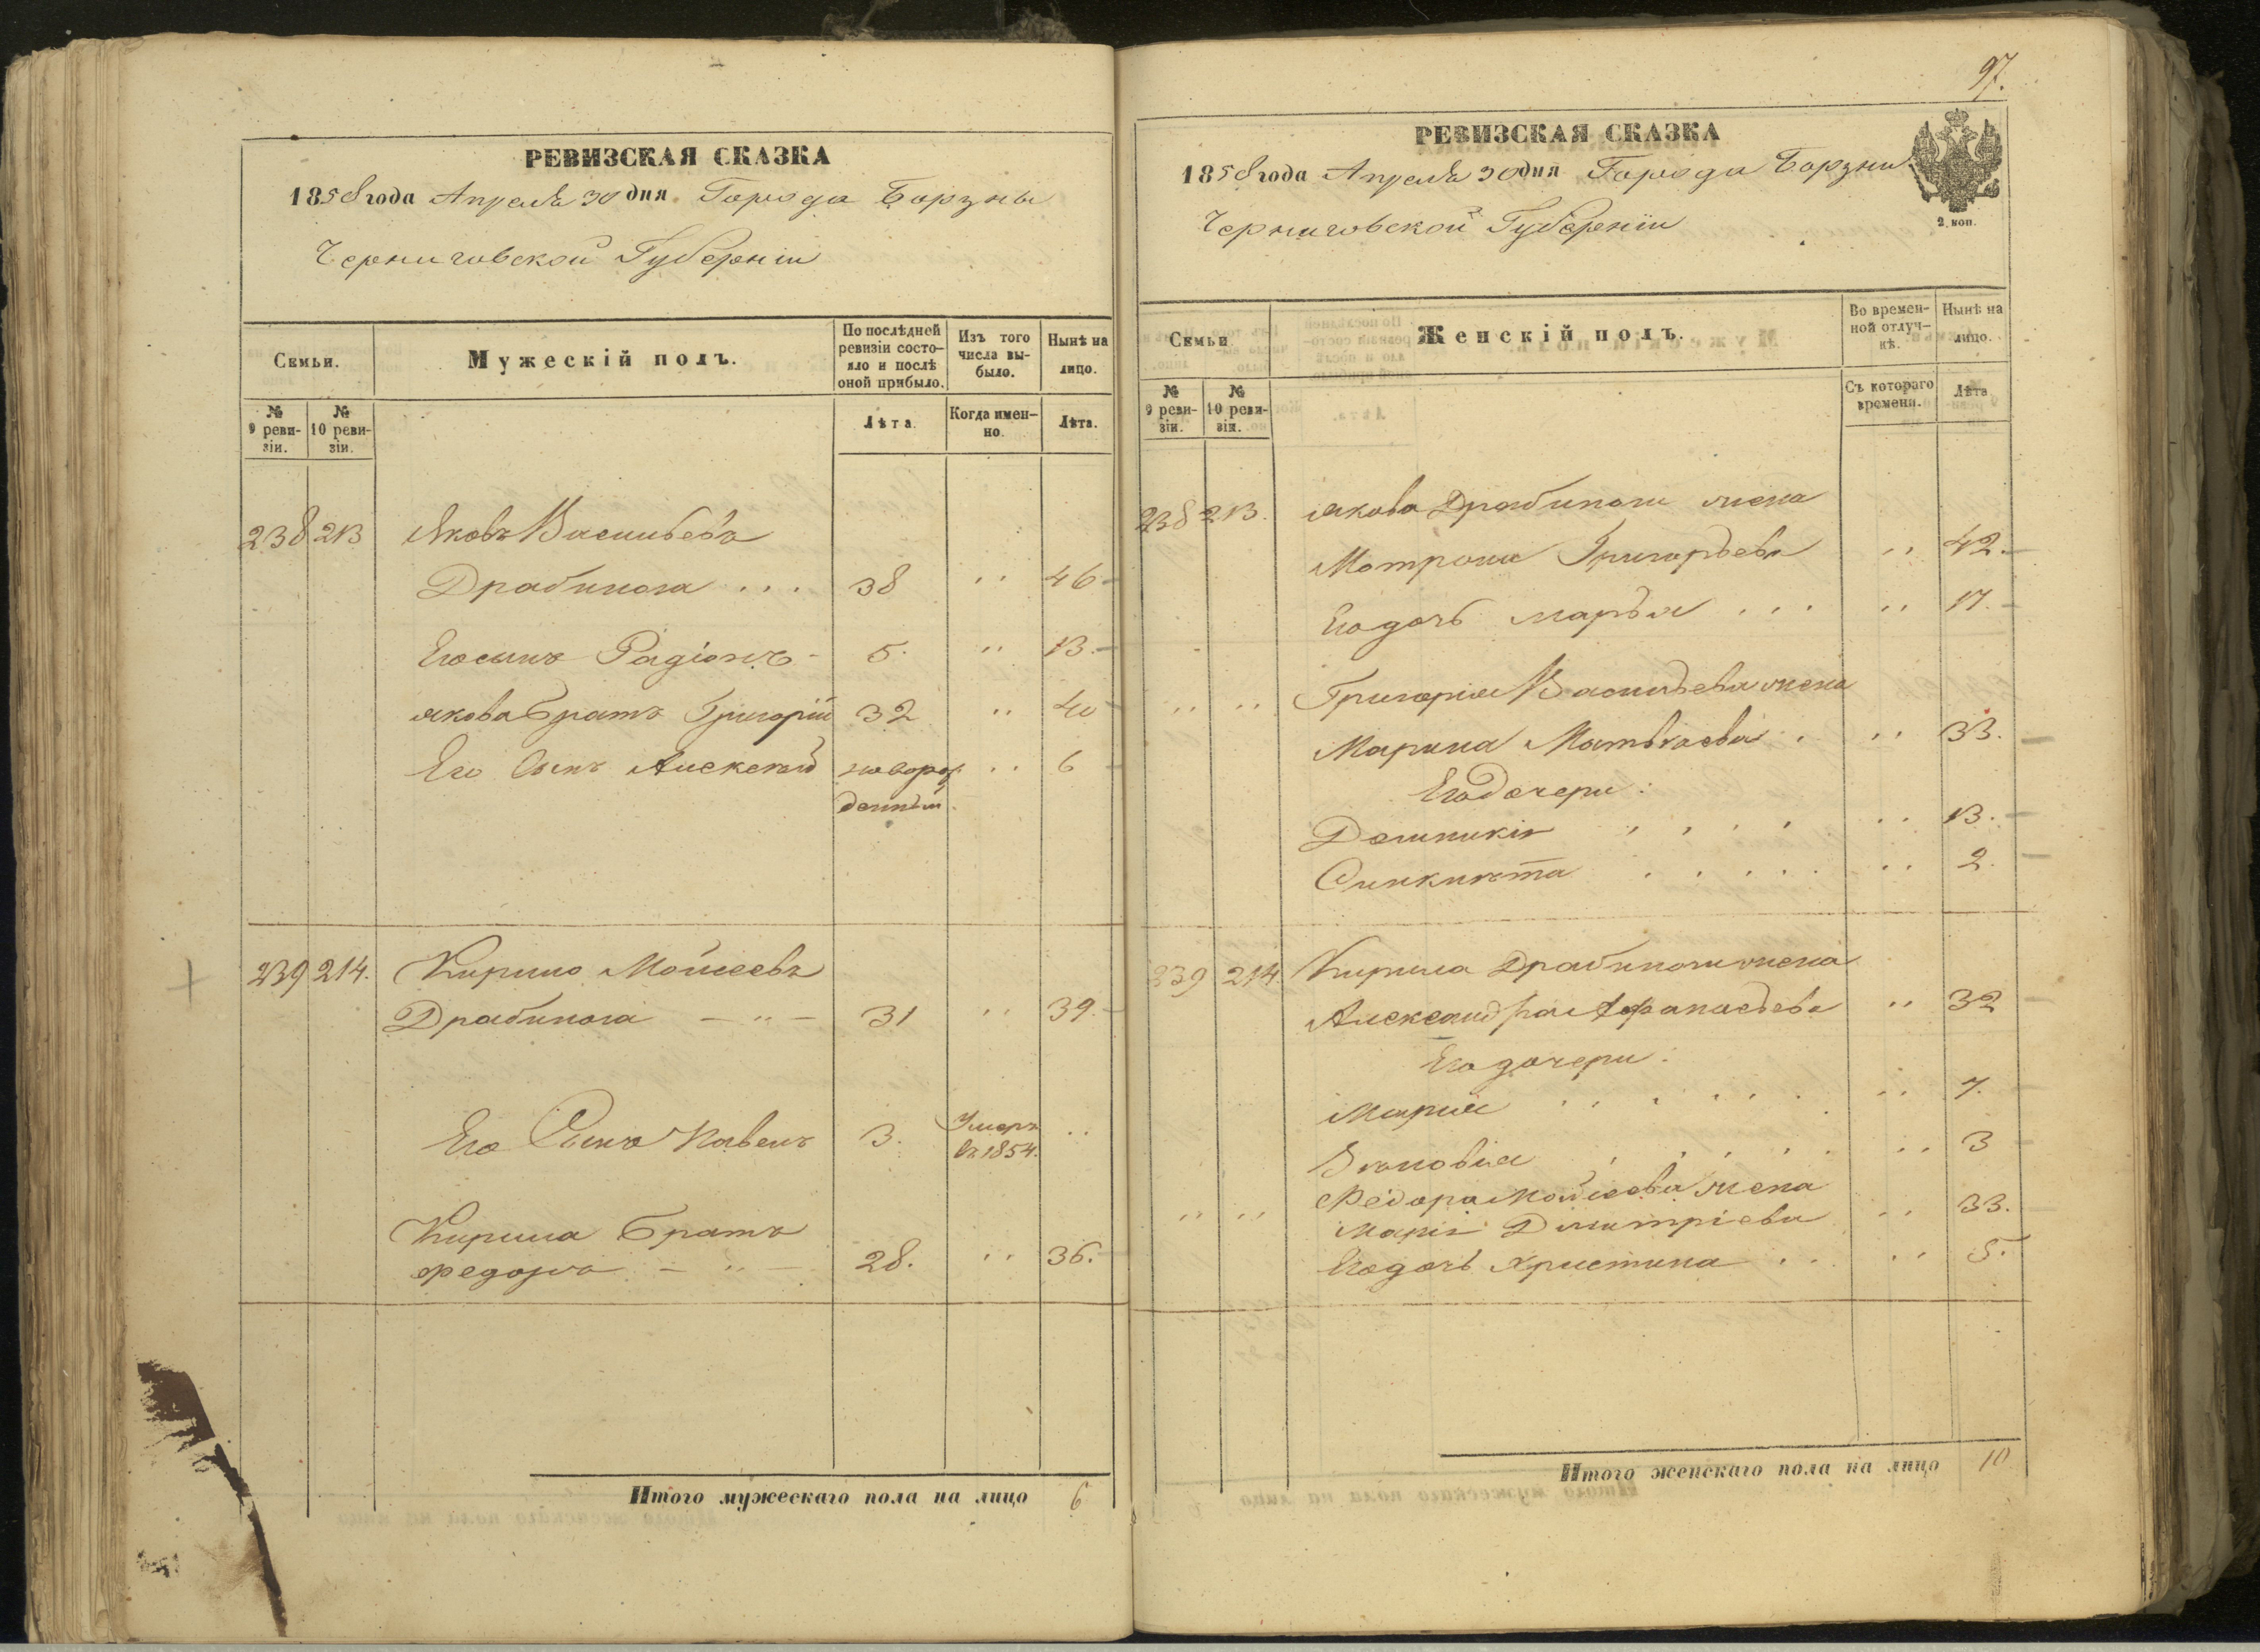 РЕВИЗСКАЯ СКАЗКА
1858 года Апреля 30 дня Города Борзны
Черниговской Губерніи
Семьи.
Мужескій полъ.
По послѣдней ревизіи состояло и послѣ оной прибыло.
Изъ того числа выбыло.
Нынѣ на лицо.
№ 9 ревизіи.
№ 10 ревизіи.
Лѣта.
Когда именно.
Лѣта.
238 213 Яковъ Васильевъ
Драбинога . . . 38 " 46
Его сынъ Радіонъ 5. " 13.
Якова братъ Григорій 32 " 40
Его Сынъ Алексѣй новорож " 6
денный.
239 214. Кирило Мойсеевъ
Драбинога — " — 31 " 39.
Его Сынъ Павелъ 3. Умеръ "
въ 1854.
Кирила братъ
Федоръ — " — 28. " 36.
Итого мужескаго пола на лицо 6
97.
РЕВИЗСКАЯ СКАЗКА
1858 года Апреля 30 дня Города Борзны
Черниговской Губерніи
2 коп.
Семьи
Женскій полъ.
Во временной отлучкѣ.
Нынѣ на лицо.
№ 9 ревизіи.
№ 10 ревизіи.
Съ котораго времени.
Лѣта
238 213. Якова Драбиноги жена
Мотрона Григорьева " 42.
Его дочь Марья . . . " 17.
" " Григорія Васильева жена
Марина Матвѣева . " 33.
Его дочери:
Домникія . . . . " 13.
Синклита . . . . . " 2.
239 214. Кирила Драбиноги жена
Александра Афанасьева " 32
Его дочери:
Марія . . . . . . " 7.
Зѣновія . . . . . " 3
" " Федора Мойсеева жена
Марія Дмитріева " 33.
Его дочь Христина . . " 5.
Итого женскаго пола на лицо 10